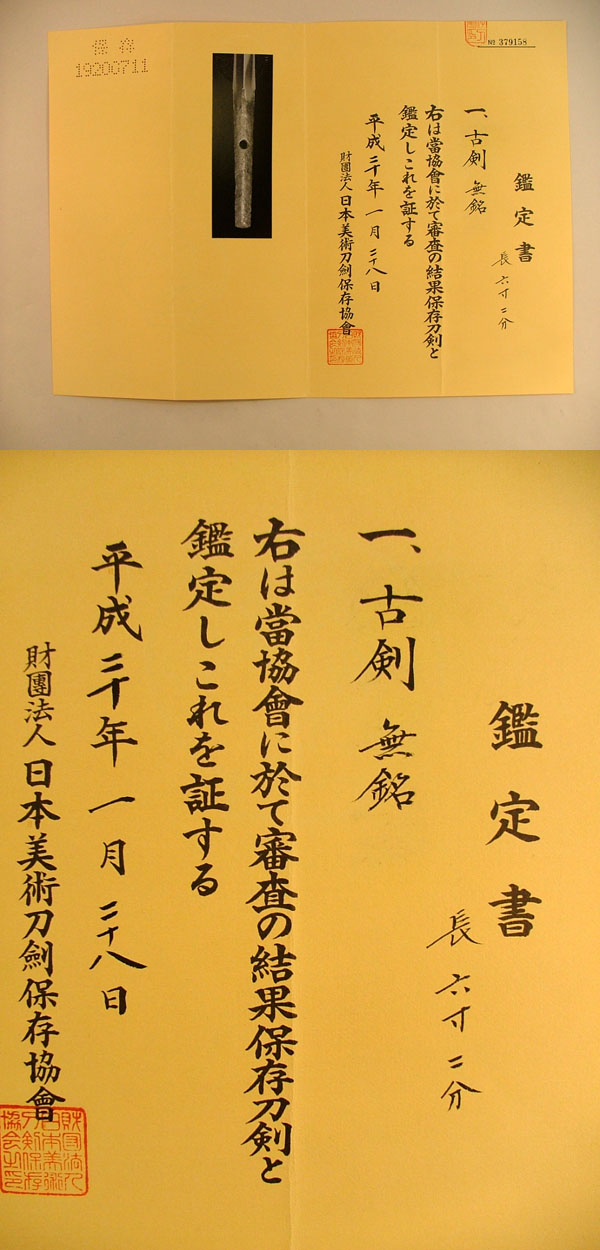 保存
19200711
№ 379158
鑑定書
長 六寸二分
一、古剣 無銘
右は當協會に於て審査の結果保存刀剣と
鑑定しこれを証する
平成二十年 一月 二十八日
財團法人 日本美術刀劍保存協會
鑑定書
長 六寸二分
一、古剣 無銘
右は當協會に於て審査の結果保存刀剣と
鑑定しこれを証する
平成二十年 一月 二十八日
財團法人 日本美術刀劍保存協會